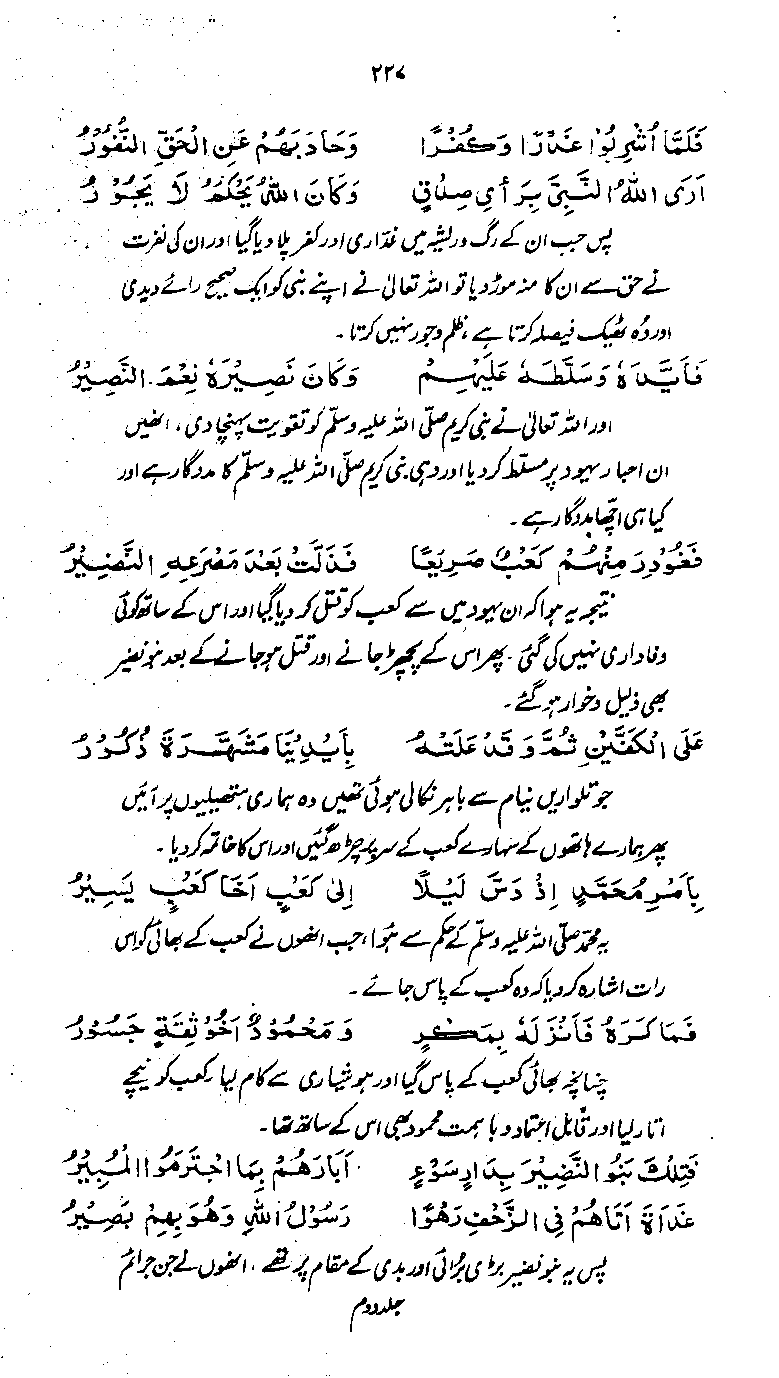 ۲۲۷
فَلَمَّا اُشْرِبُوْا غَدْرًا وَكُفْرًا وَحَادَبِهُمْ عَنِ الْحَقِّ النُّفُوْرُ
اَرَى اللهُ النَّبِيَّ بِرَأيِ صِدْقٍ وَكَانَ اللهُ يَحْكُمُ لَا يَجُوْرُ
پس جب ان کے رگ و ریشہ میں غداری اور کفر پلا دیا گیا اور ان کی نفرت
نے حق سے ان کا منہ موڑ دیا تو اللہ تعالیٰ نے اپنے نبی کو ایک صحیح رائے دیدی
اور وُہ ٹھیک فیصلہ کرتا ہے ظلم و جور نہیں کرتا ۔
فَاَيَّدَهٗ وَسَلَّطَهٗ عَلَيْهِمْ وَكَانَ نَصِيْرُهٗ نِعْمَ النَّصِيْرُ
اور اللہ تعالیٰ نے نبی کریم صلّی اللہ علیہ وسلّم کو تقویت پہنچا دی ، انھیں
ان احبار یہود پر مسلّط کر دیا اور وہی نبی کریم صلّی اللہ علیہ وسلّم کا مددگار ہے اور
کیا ہی اچھا مددگار ہے ۔
فَغُوْدِرَ مِنْهُمْ كَعْبٌ صَرِيْعًا فَذَلَّتْ بَعْدَ مَصْرَعِهِ النَّضِيْرُ
نتیجہ یہ ہوا کہ ان یہود میں سے کعب کو قتل کر دیا گیا اور اس کے ساتھ کوئی
وفاداری نہیں کی گئی ۔ پھر اس کے پچھڑ جانے اور قتل ہو جانے کے بعد بنو نضیر
بھی ذلیل و خوار ہو گئے ۔
عَلَى الْكَفَّيْنِ ثُمَّ وَقَدْ عَلَتْهُ بِاَيْدِيْنَا مَشْهَرَةٌ ذُكُوْرُ
جو تلواریں نیام سے باہر نکالی ہوئی تھیں وہ ہماری ہتھیلیوں پر آئیں
پھر ہمارے ہاتھوں کے سہارے کعب کے سر پر چڑھ گئیں اور اس کا خاتمہ کر دیا ۔
بِاَمْرِ مُحَمَّدٍ اِذْ دَسَّ لَيْلًا اِلٰى كَعْبٍ اَخَا كَعْبٍ يَسِيْرُ
یہ محمّد صلّی اللہ علیہ وسلّم کے حکم سے ہُوا ، جب انھوں نے کعب کے بھائی کو اس
رات اشارہ کر دیا کہ وہ کعب کے پاس جائے ۔
فَمَا كَرَهٗ فَاَنْزَلَهٗ بِمَكْرٍ وَمَحْمُوْدٌ اَخُوْ ثِقَةٍ جَسُوْرُ
چنانچہ بھائی کعب کے پاس گیا اور ہوشیاری سے کام لیا ، کعب کو نیچے
اتار لیا اور قابل اعتماد و با ہمت محمود بھی اس کے ساتھ تھا ۔
فَتِلْكَ بَنُو النَّضِيْرِ بِدَارِ سَوْءٍ اَبَارَهُمْ بِمَا اجْتَرَمُوا الْمُبِيْرُ
غَدَاةَ اَتَاهُمْ فِي الزَّحْفِ رَهْوًا رَسُوْلُ اللهِ وَهُوَ بِهِمْ بَصِيْرُ
پس یہ بنو نضیر بڑی بُرائی اور بدی کے مقام پر تھے ، انھوں نے جن جرائم
جلد دوم